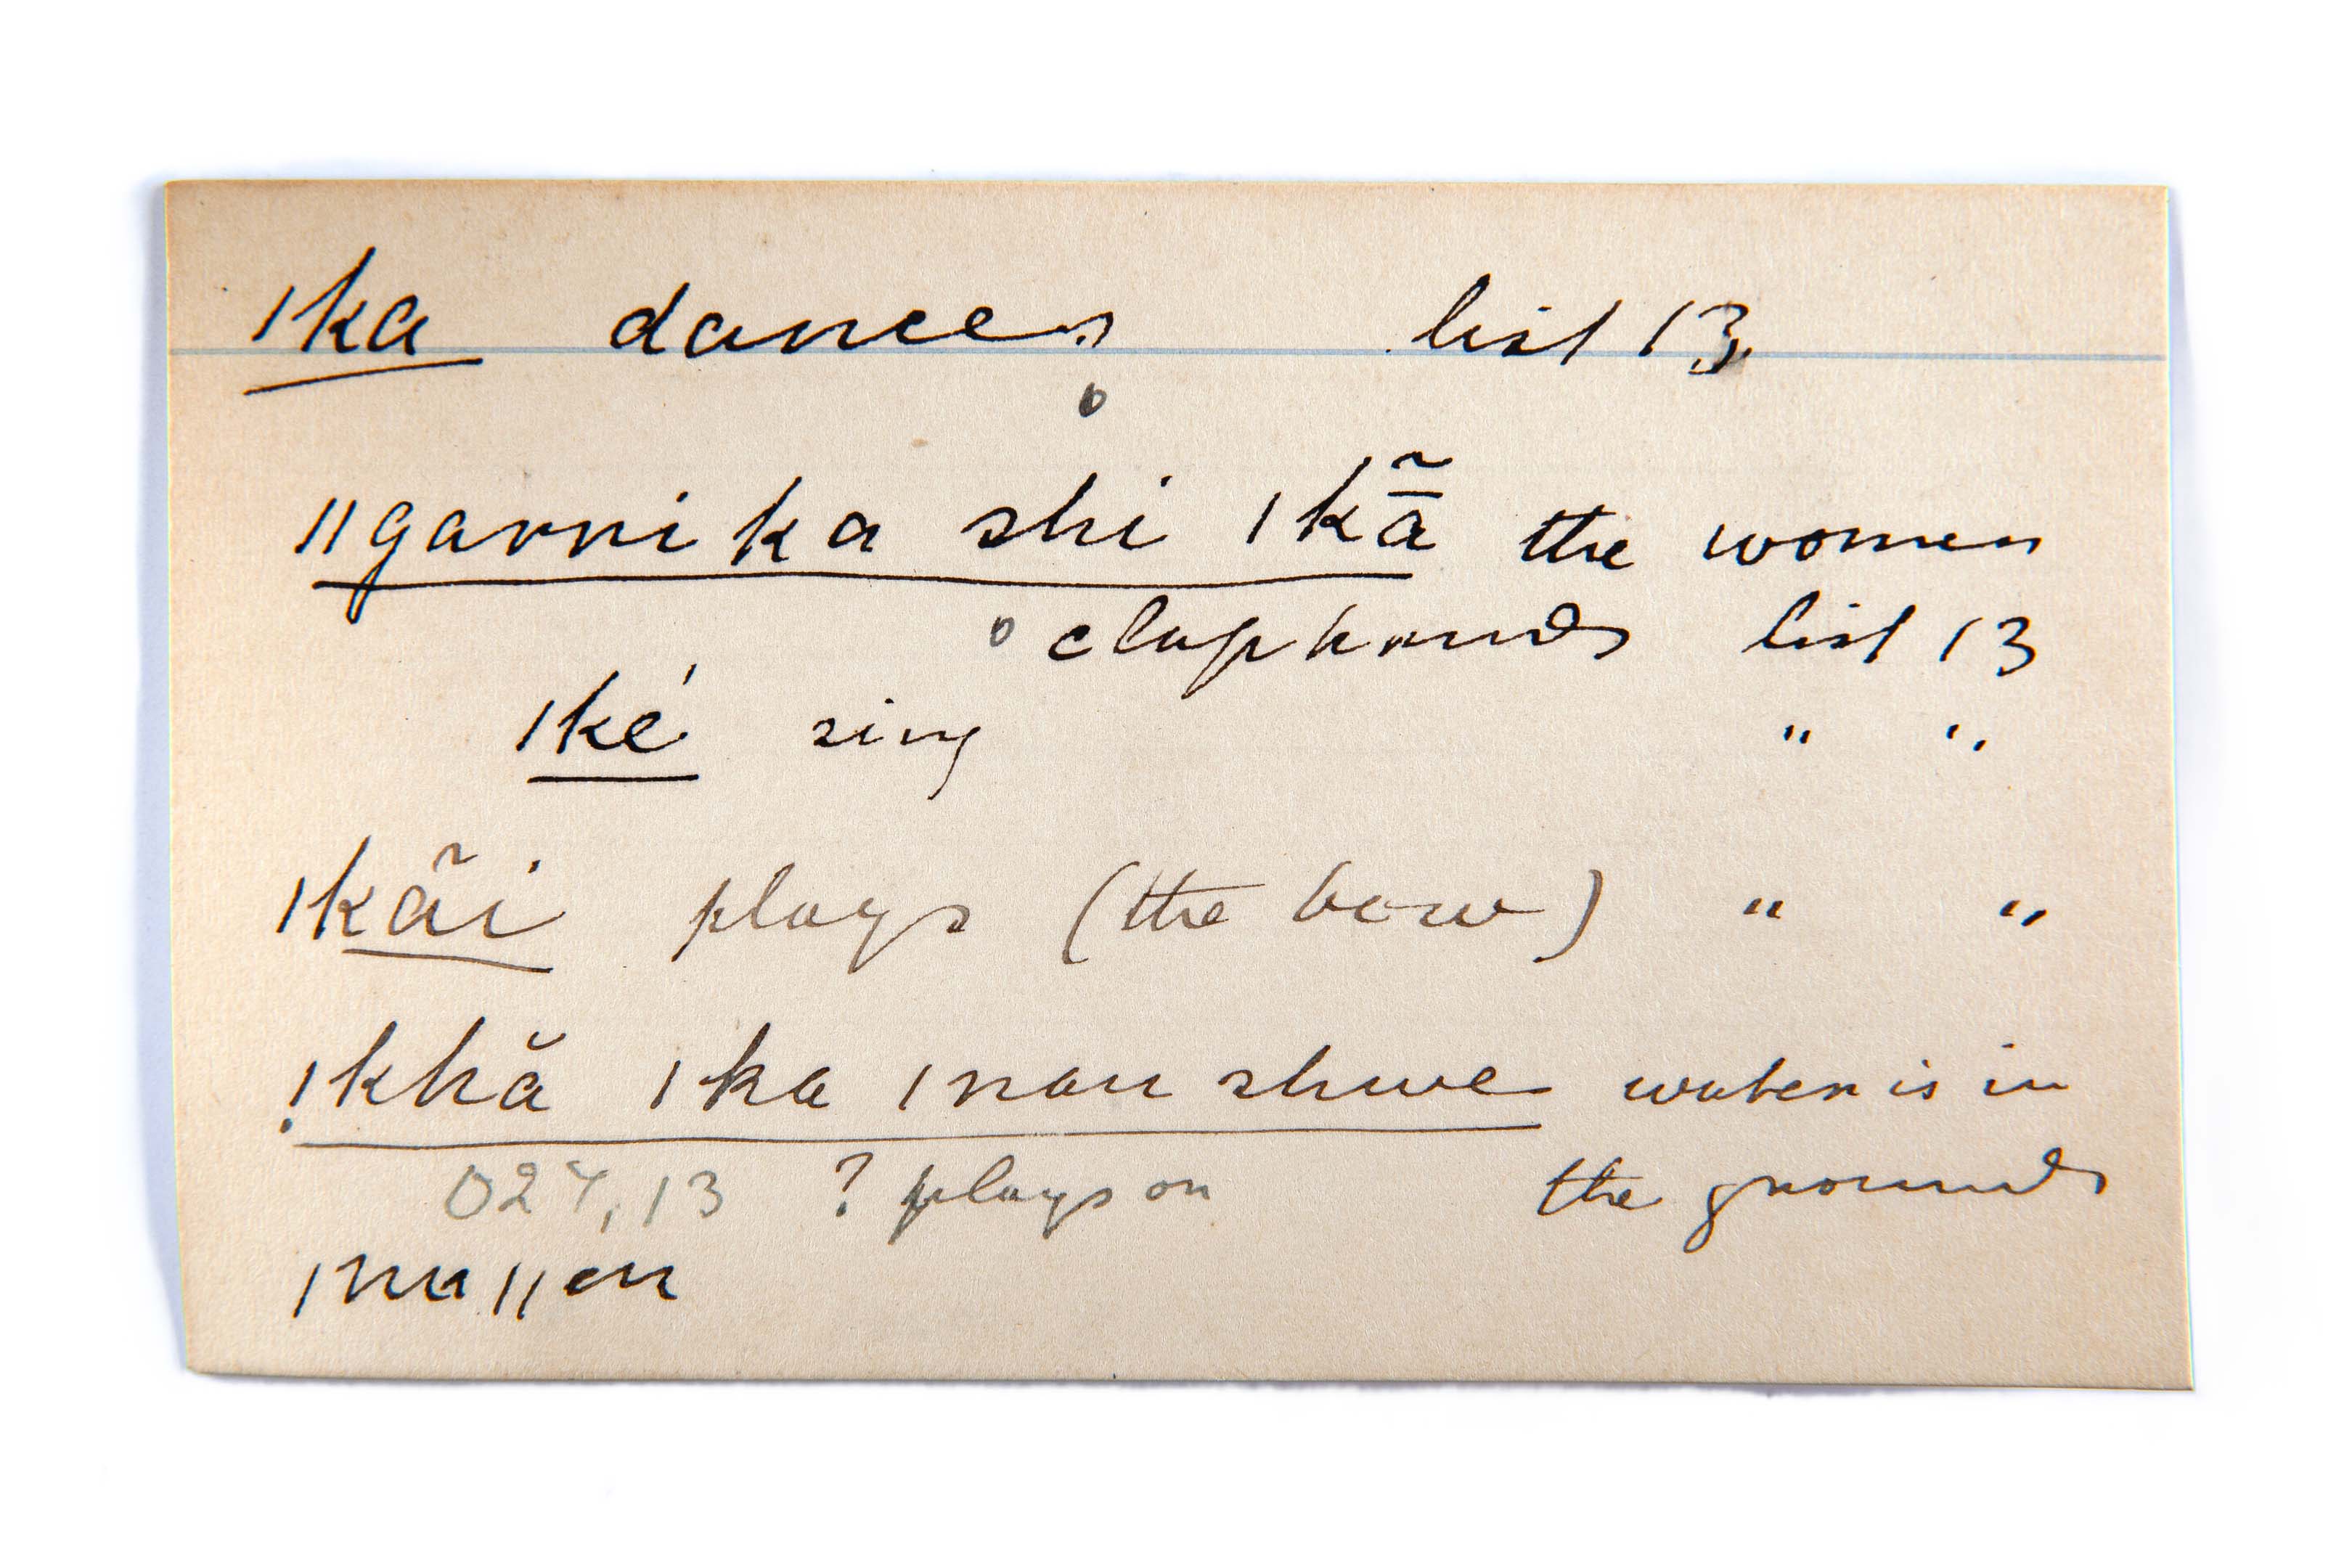 ǀka dances list 13
o
ǁgarnika shi ǀkā̃ the women
o clap hands list 13
ǀké sing " "
ǀkãi plays (the bow) " "
!khă ǀka ǀnau shwe water is in
the grounds
13 ? plays on